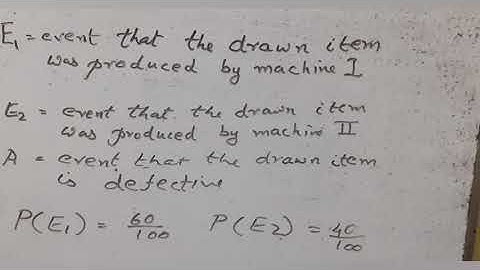 E₁ = event that the drawn item
was produced by machine I
E₂ = event that the drawn item
was produced by machine II
A = event that the drawn item
is defective
P(E₁) = 60/100 P(E₂) = 40/100